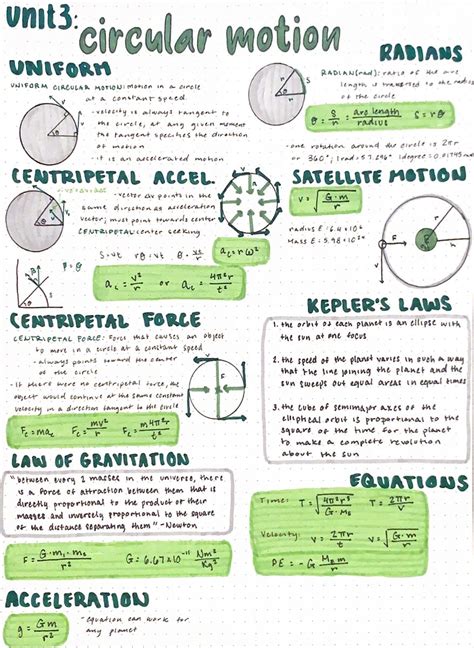 unit 3:
circular motion
UNIFORM
UNIFORM CIRCULAR MOTION: motion in a circle
at a constant speed
- velocity is always tangent to
the circle, at any given moment
the tangent specifies the direction
of motion
- it is an accelerated motion
RADIANS
RADIAN (rad): ratio of the arc
length is traversed to the radius
of the circle
θ = S/r = arc length/radius   S = rθ
- one rotation around the circle is 2πr
or 360°; 1rad = 57.296° 1degree = 0.01745 rad
CENTRIPETAL ACCEL.
- vector Δv points in the
same direction as acceleration
vector; must point towards center
CENTRIPETAL: center seeking
S = vt   rθ = vt   θ =
a_c = rω²
a_c = v²/r   or   a_c = 4π²r/t²
SATELLITE MOTION
v = √(G·m/r)
radius E: 6.4 × 10⁶
Mass E: 5.98 × 10²⁴
CENTRIPETAL FORCE
CENTRIPETAL FORCE: Force that causes an object
to move in a circle at a constant speed
- always points toward the center
of the circle
- if there were no centripetal force, the
object would continue at the same constant
velocity in a direction tangent to the circle
F_c = ma_c   F_c = mv²/r   F_c = m4π²r/t²
KEPLER'S LAWS
1. the orbit of each planet is an ellipse with
the sun at one focus
2. the speed of the planet varies in such a way
that the line joining the planet and the
sun sweeps out equal areas in equal times
3. the cube of semimajor axes of the
elliptical orbit is proportional to the
square of the time for the planet
to make a complete revolution
about the sun
LAW OF GRAVITATION
"between every 2 masses in the universe, there
is a force of attraction between them that is
directly proportional to the product of their
masses and inversely proportional to the square
of the distance separating them" - Newton
F = G·m₁·m₂/r²   G = 6.67×10⁻¹¹ Nm²/Kg²
EQUATIONS
Time: T = √(4π²r³/G·M_E)   T = 2πr/v
Velocity: v = 2πr/t   v = √(G·m/r)
PE = -G M_E m/r
ACCELERATION
g = Gm/r²
- equation can work for
any planet